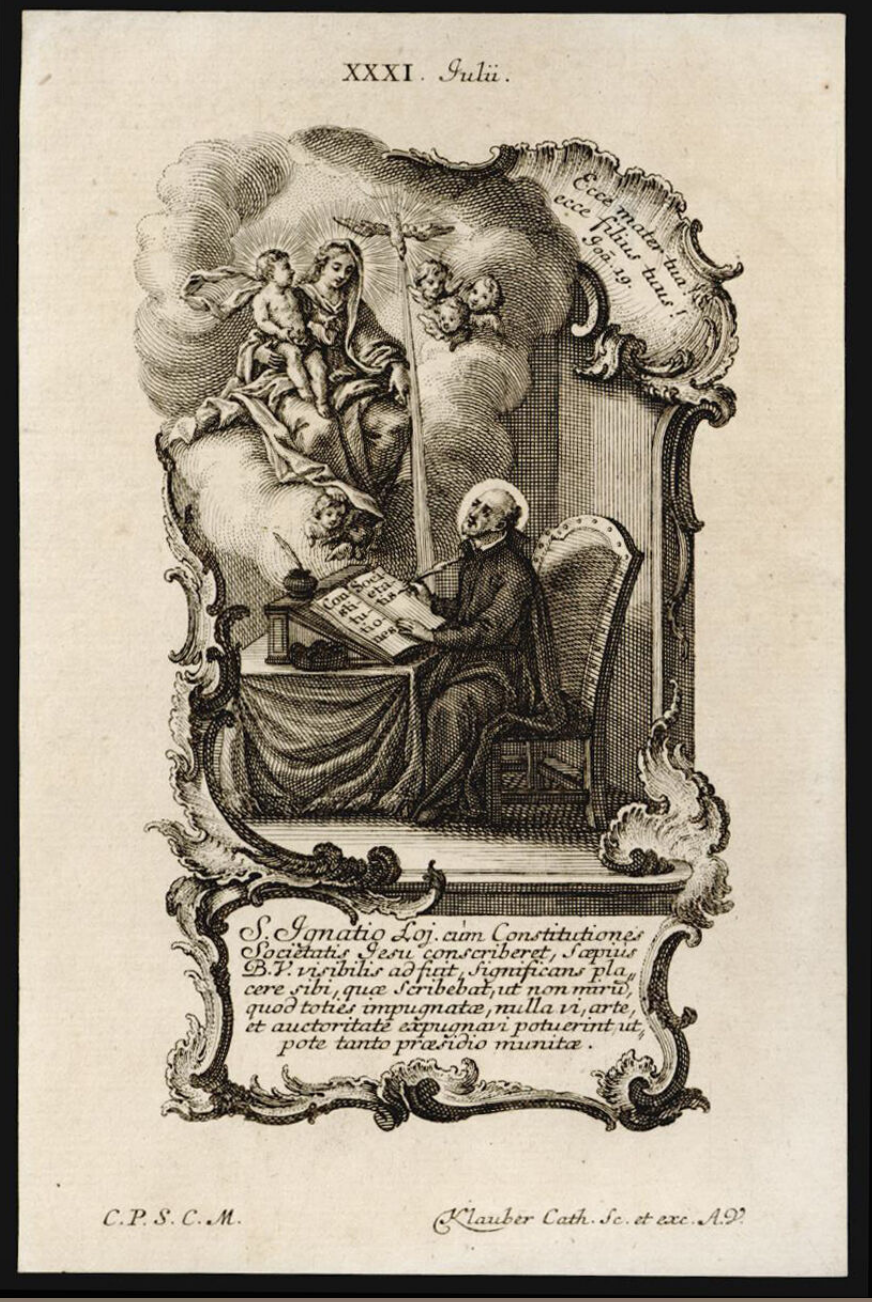 XXXI. Julii.
Ecce mater tua!
ecce filius tuus!
Joã. 19.
Con
sti
tu
tio-
nes
Soci
eta
tis
S. Ignatio Loj. cùm Constitutiones
Societatis Jesu conscriberet, sæpius
B.V. visibilis adfuit, significans pla„
cere sibi, quæ scribebat, ut non mirũ,
quod toties impugnatæ, nulla vi, arte,
et auctoritate expugnari potuerint, ut„
pote tanto præsidio munitæ.
C. P. S. C. M.
Klauber Cath. Sc. et exc. A.V.